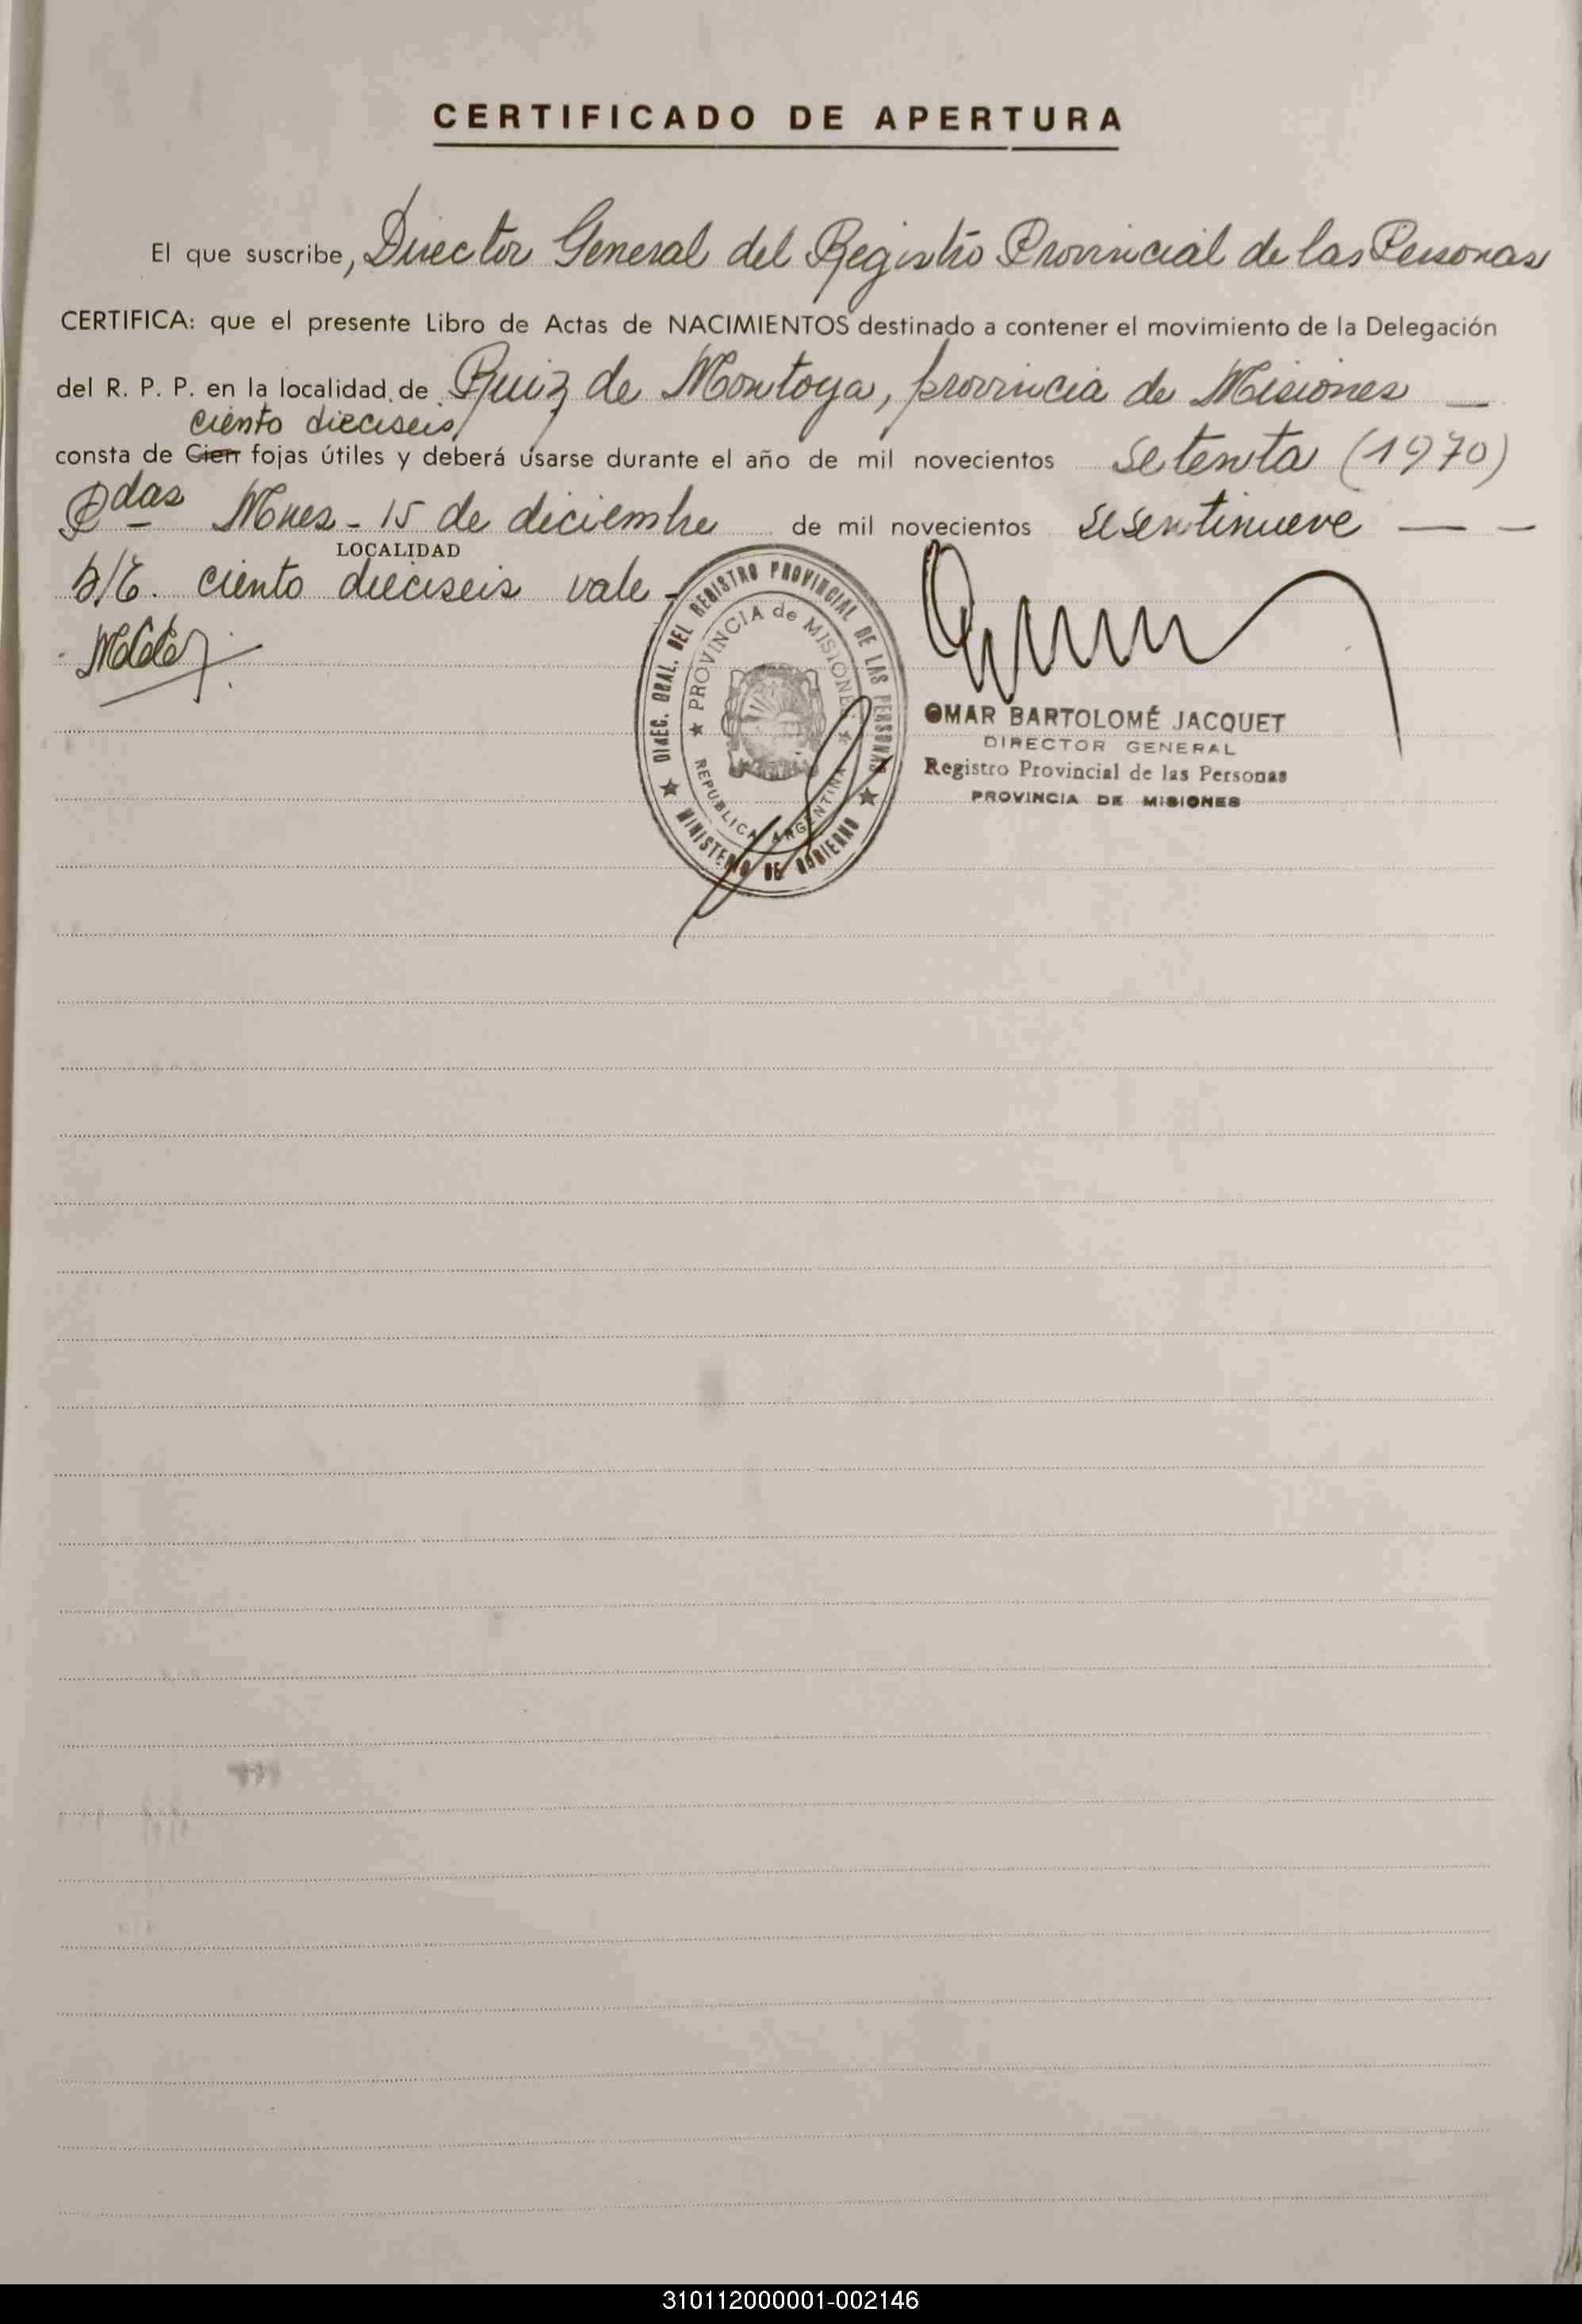 CERTIFICADO DE APERTURA
El que suscribe, Director General del Registro Provincial de las Personas
CERTIFICA: que el presente Libro de Actas de NACIMIENTOS destinado a contener el movimiento de la Delegación
del R. P. P. en la localidad de Ruiz de Montoya, provincia de Misiones —
ciento dieciseis
consta de Cien fojas útiles y deberá usarse durante el año de mil novecientos setenta (1970)
Pdas Mnes - 15 de diciembre de mil novecientos sesentinueve — —
LOCALIDAD
s/E. ciento dieciseis vale -
DIREC. GRAL. DEL REGISTRO PROVINCIAL DE LAS PERSONAS
★ PROVINCIA de MISIONES ★
REPUBLICA ARGENTINA
★ MINISTERIO DE GOBIERNO ★
OMAR BARTOLOMÉ JACQUET
DIRECTOR GENERAL
Registro Provincial de las Personas
PROVINCIA DE MISIONES
310112000001-002146